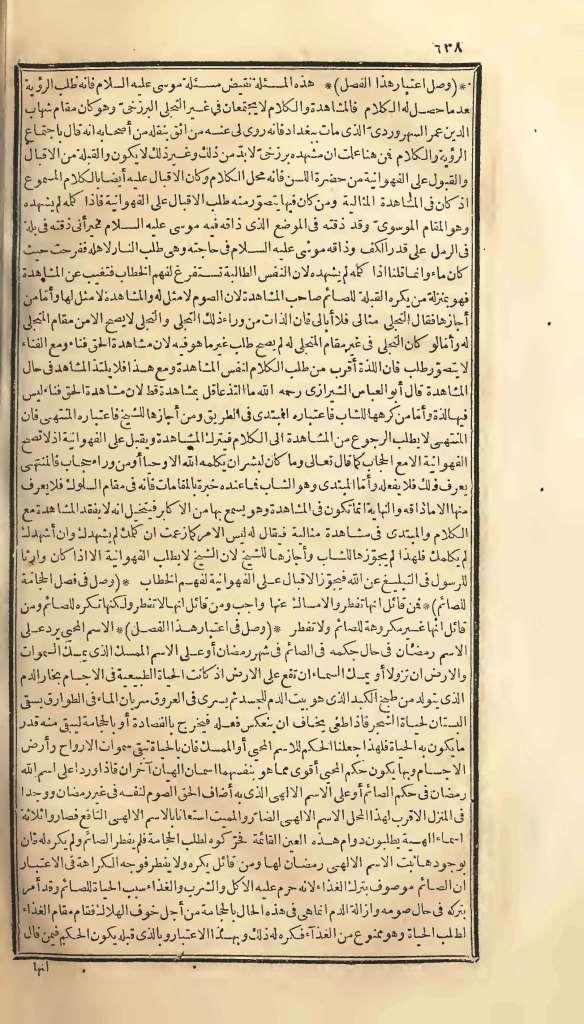 ٦٣٨
*(وصل اعتبار هذا الفصل)* هذه المسئلة نقيض مسئلة موسى عليه السلام فانه طلب الرؤية
بعد ما حصل له الكلام فالمشاهدة والكلام لا يجتمعان فى غير التجلى البرزخى وهو كان مقام شهاب
الدين عمر السهروردى الذى مات ببغداد فانه روى لى عنه من اثق بنقله من أصحابه انه قال باجتماع
الرؤية والكلام فمن هنا علمت ان مشهده برزخى لابد من ذلك وغير ذلك لا يكون والقبلة من الاقبال
والقبول على الفهوانية من حضرة اللسن فانه محل الكلام وكان الاقبال عليه أيضا بالكلام المسموع
اذ كان فى المشاهدة المثالية ومن كان فيها يتصور منه طلب الاقبال على الفهوانية فاذا كلمه لم يشهده
وهو المقام الموسوى وقد ذقته فى الموضع الذى ذاقه فيه موسى عليه السلام غير أنى ذقته فى بلة
فى الرمل على قدر الكف وذاقه موسى عليه السلام فى حاجته وهى طلب النار لاهله ففرحت حيث
كان ماء وانما قلنا اذا كلمه لم يشهده لان النفس الطالبة تستفرغ لفهم الخطاب فتغيب عن المشاهدة
فهو بمنزلة من يكره القبلة للصائم صاحب المشاهدة لان الصوم لا مثل له والمشاهدة لا مثل لها وأما من
أجازها فقال التجلى مثالى فلا أبالى فان الذات من وراء ذلك التجلى والتجلى لا يصح الا من مقام المتجلى
له وأما لو كان التجلى فى غير مقام المتجلى له لم يصح طلب غير ما هو فيه لان مشاهدة الحق فناء ومع الفناء
لا يتصور طلب فان اللذة أقرب من طلب الكلام لنفس المشاهدة ومع هذا فلا يلتذ المشاهد فى حال
المشاهدة قال أبو العباس الشيرازى رحمه الله ما التذ عاقل بمشاهدة قط لان مشاهدة الحق فناء ليس
فيها لذة وأما من كرهها للشاب فاعتباره المبتدى فى الطريق ومن أجازها للشيخ فاعتباره المنتهى فان
المنتهى لا يطلب الرجوع من المشاهدة الى الكلام فيترك المشاهدة ويقبل على الفهوانية اذ لا تصح
الفهوانية الا مع الحجاب كما قال تعالى وما كان لبشر ان يكلمه الله الا وحيا أو من وراء حجاب فالمنتهى
يعرف ذلك فلا يفعله وأما المبتدى وهو الشاب فما عنده خبرة بالمقامات فانه فى مقام السلوك فلا يعرف
منها الا ما ذاقه والنهاية انما تكون فى المشاهدة وهو يسمع بها من الاكابر فيتخيل انه لا يفقد المشاهدة مع
الكلام والمبتدى فى مشاهدة مثالية فيقال له ليس الامر كما زعمت ان كلمك لم يشهدك وان أشهدك
لم يكلمك فلهذا لم يجوزها للشاب وأجازها للشيخ لان الشيخ لا يطلب الفهوانية الا اذا كان وارثا
للرسول فى التبليغ عن الله فيجوز الاقبال على الفهوانية لفهم الخطاب *(وصل فى فصل الحجامة
للصائم)* فمن قائل انها تفطر والامساك عنها واجب ومن قائل انها لا تفطر ولكنها تكره للصائم ومن
قائل انها غير مكروهة للصائم ولا تفطر *(وصل فى اعتبار هذا الفصل)* الاسم المحيى يرد على
الاسم رمضان فى حال حكمه فى الصائم فى شهر رمضان أو على الاسم الممسك الذى يمسك السموات
والارض ان تزولا أو يمسك السماء ان تقع على الارض اذ كانت الحياة الطبيعية فى الاجسام بخار الدم
الذى يتولد من طبخ الكبد الذى هو بيت الدم للجسد ثم يسرى فى العروق سريان الماء فى الطوارق يسقى
البستان لحياة الشجر فاذا طمى يخاف ان ينعكس فعله فيخرج بالفصادة أو بالحجامة ليبقى منه قدر
ما يكون به الحياة فلهذا جعلنا الحكم للاسم المحيى أو الممسك فان بالحياة تبقى سموات الارواح وأرض
الاجسام وبها يكون حكم المحيى أقوى مما هو بنفسه هما اسمان الهيان آخران فاذا وردا على اسم الله
رمضان فى حكم الصائم أو على الاسم الالهى الذى به أضاف الحق الصوم لنفسه فى غير رمضان ووجدا
فى المنزل الاقرب لهذا المحل الاسم الالهى الضار والمميت استعانا بالاسم الالهى النافع فصاروا ثلاثة
اسماء الهية يطلبون دوام هذه العين القائمة فحركوه لطلب الحجامة فلم يفطر الصائم ولم يكره له فان
بوجودها ثبت الاسم الالهى رمضان لها ومن قائل يكره ولا يفطر فوجه الكراهة فى الاعتبار
ان الصائم موصوف بترك الغذاء لانه حرم عليه الاكل والشرب والغذاء سبب الحياة للصائم وقد أمر
بتركه فى حال صومه وازالة الدم انما هى فى هذه الحال بالحجامة من أجل خوف الهلاك فقام مقام الغذاء
لطلب الحياة وهو ممنوع من الغذاء فكره له ذلك وبهذا الاعتبار وبالذى قبله يكون الحكم فيمن قال
انها